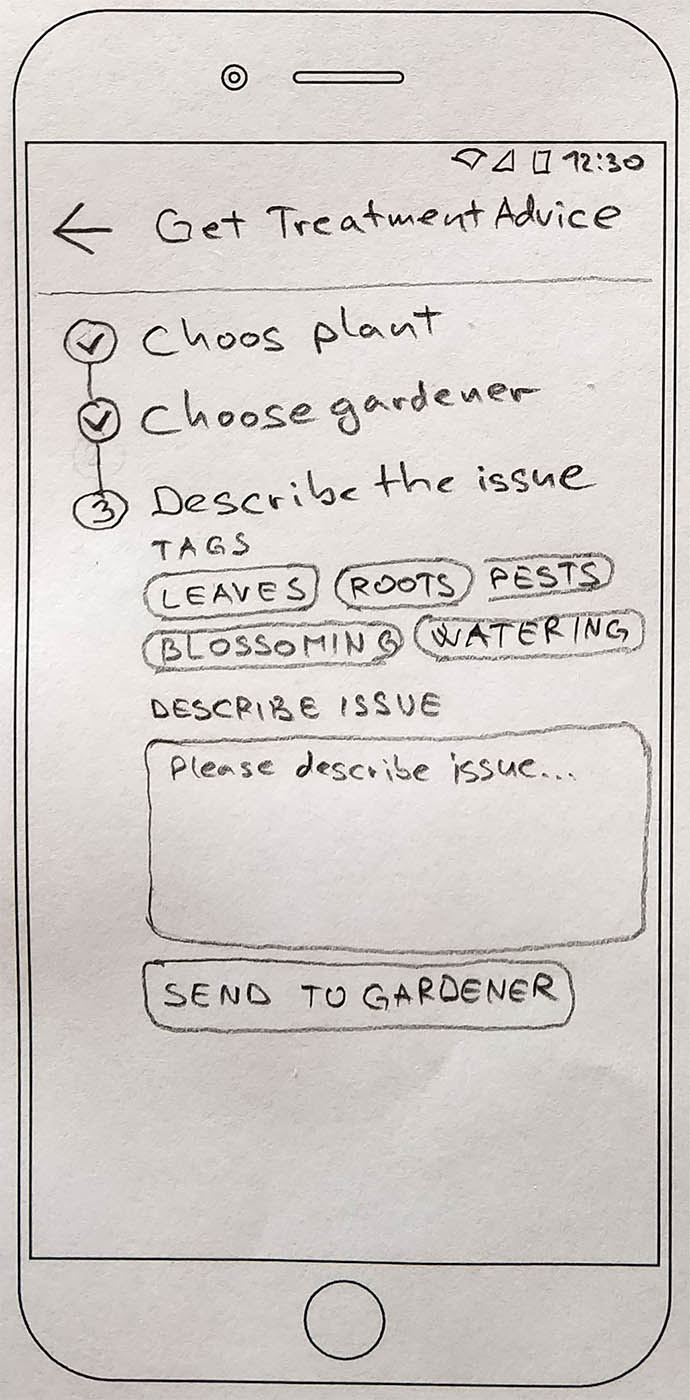 12:30
Get Treatment Advice
Choos plant
Choose gardener
3 Describe the issue
TAGS
LEAVES ROOTS PESTS
BLOSSOMING WATERING
DESCRIBE ISSUE
Please describe issue...
SEND TO GARDENER